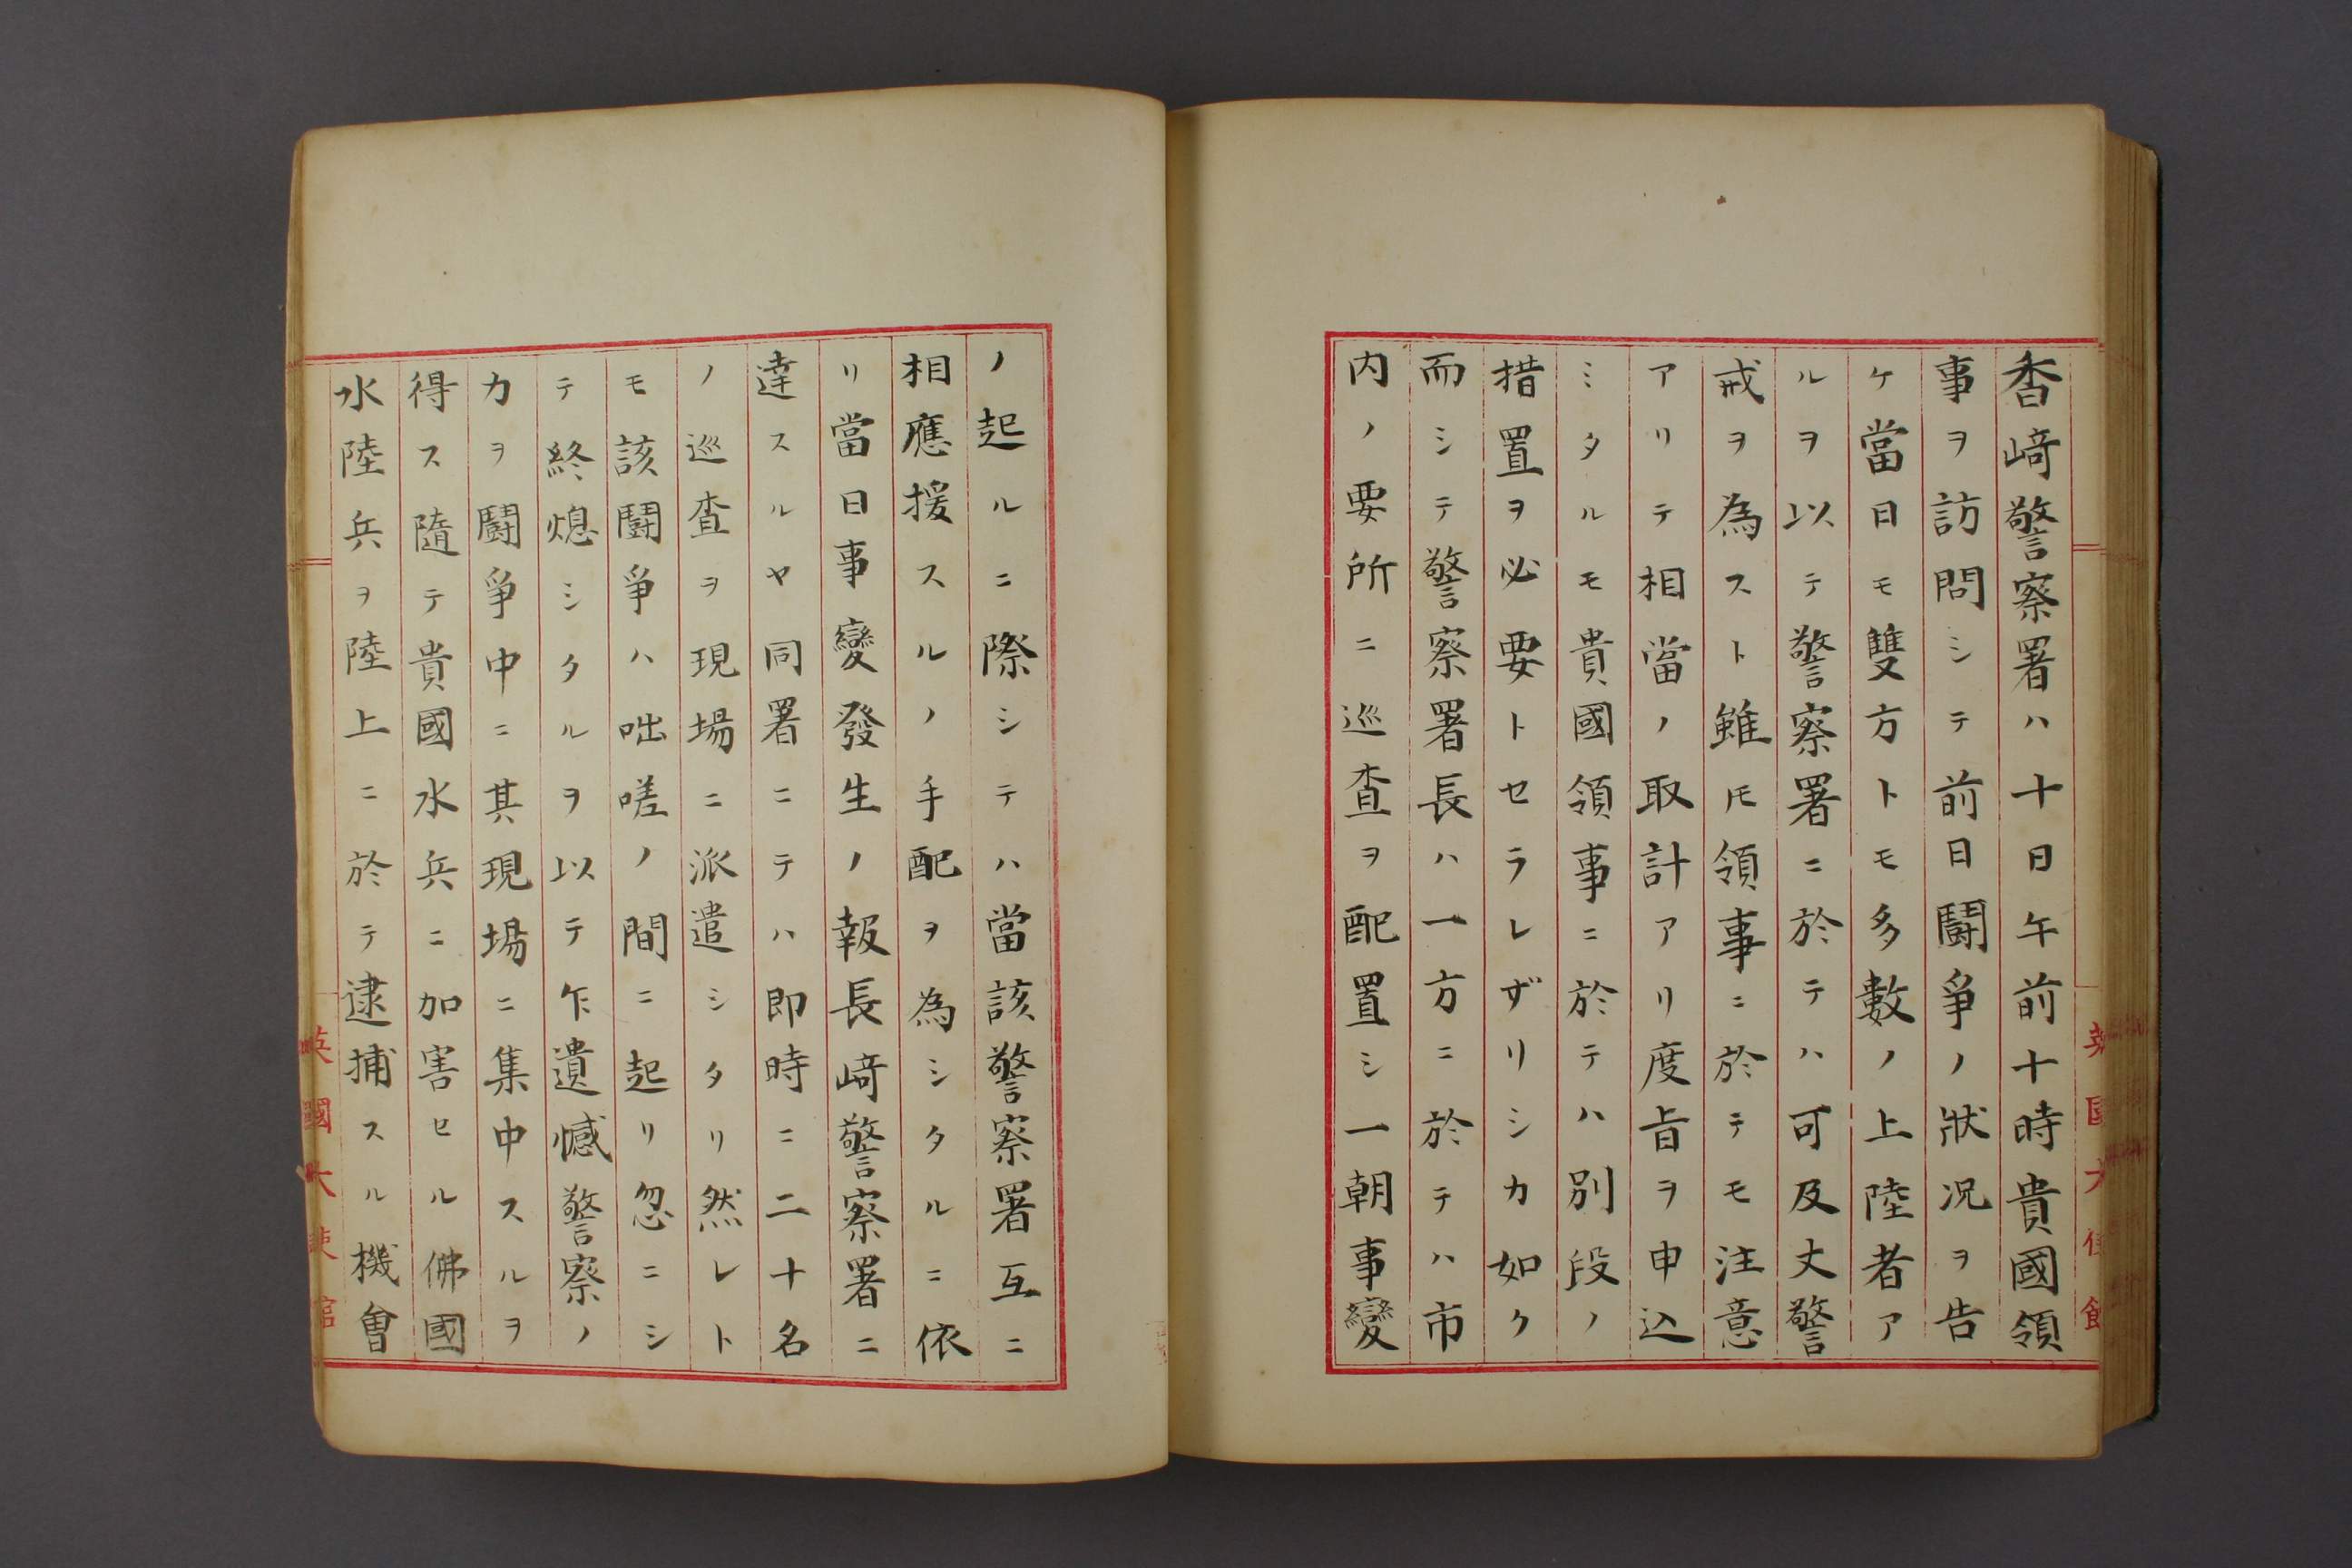 香﨑警察署ハ十日午前十時貴國領
事ヲ訪問シテ前日鬪爭ノ狀况ヲ告
ケ當日モ雙方トモ多數ノ上陸者ア
ルヲ以テ警察署ニ於テハ可及丈警
戒ヲ為スト雖𪜈領事ニ於テモ注意
アリテ相當ノ取計アリ度旨ヲ申込
ミタルモ貴國領事ニ於テハ別段ノ
措置ヲ必要トセラレズリシカ如ク
而シテ警察署長ハ一方ニ於テハ市
内ノ要所ニ巡査ヲ配置シ一朝事變
ノ起ルニ際シテハ當該警察署互ニ
相應援スルノ手配ヲ為シタルニ依
リ當日事變發生ノ報長﨑警察署ニ
達スルヤ同署ニテハ即時ニ二十名
ノ巡査ヲ現場ニ派遣シタリ然レト
モ該鬪爭ハ咄嗟ノ間ニ起リ忽ニシ
テ終熄シタルヲ以テ乍遺憾警察ノ
カヲ鬪爭中ニ其現場ニ集中スルヲ
得ス隨テ貴國水兵ニ加害セル佛國
水陸兵ヲ陸上ニ於テ逮捕スル機會
英國大使館